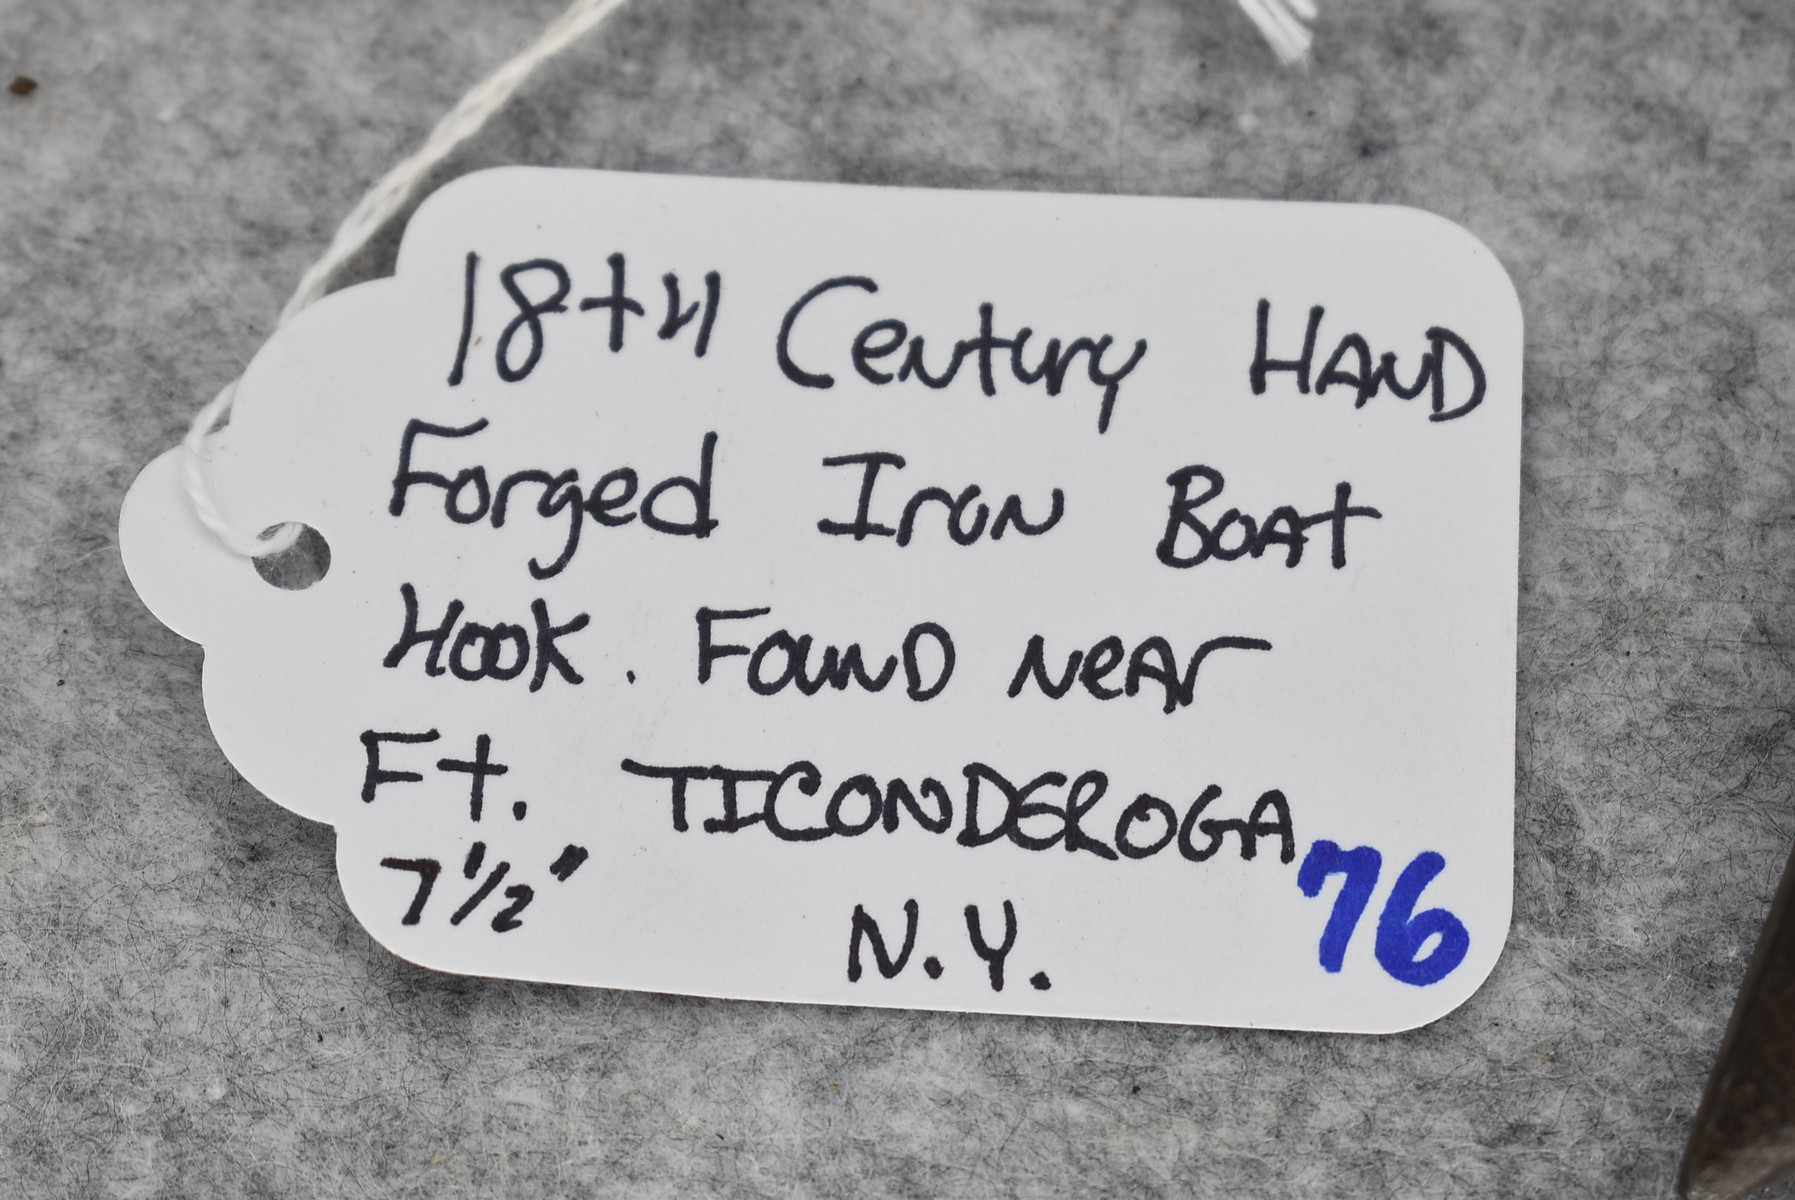 18tH Century HAND
Forged Iron BOAt
HOOK. FOUND NeAr
Ft. TICONDEROGA
7 1/2" N.Y. 76